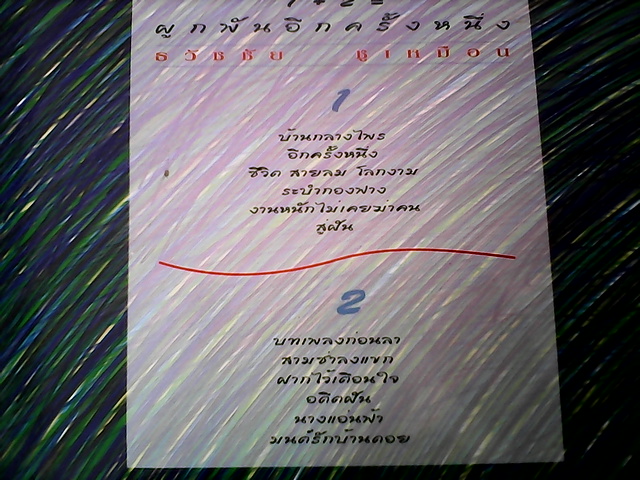 1 + 2 =
ผูกพันอีกครั้งหนึ่ง
ธวัชชัย ชูเหมือน
1
บ้านกลางไพร
อีกครั้งหนึ่ง
ชีวิต สายลม โลกงาม
ระบำกองฟาง
งานหนักไม่เคยฆ่าคน
สู่ฝัน
2
บทเพลงก่อนลา
สามช่าลงแขก
ฝากไว้เตือนใจ
อดีตฝัน
นางแอ่นฟ้า
มนต์รักบ้านดอย